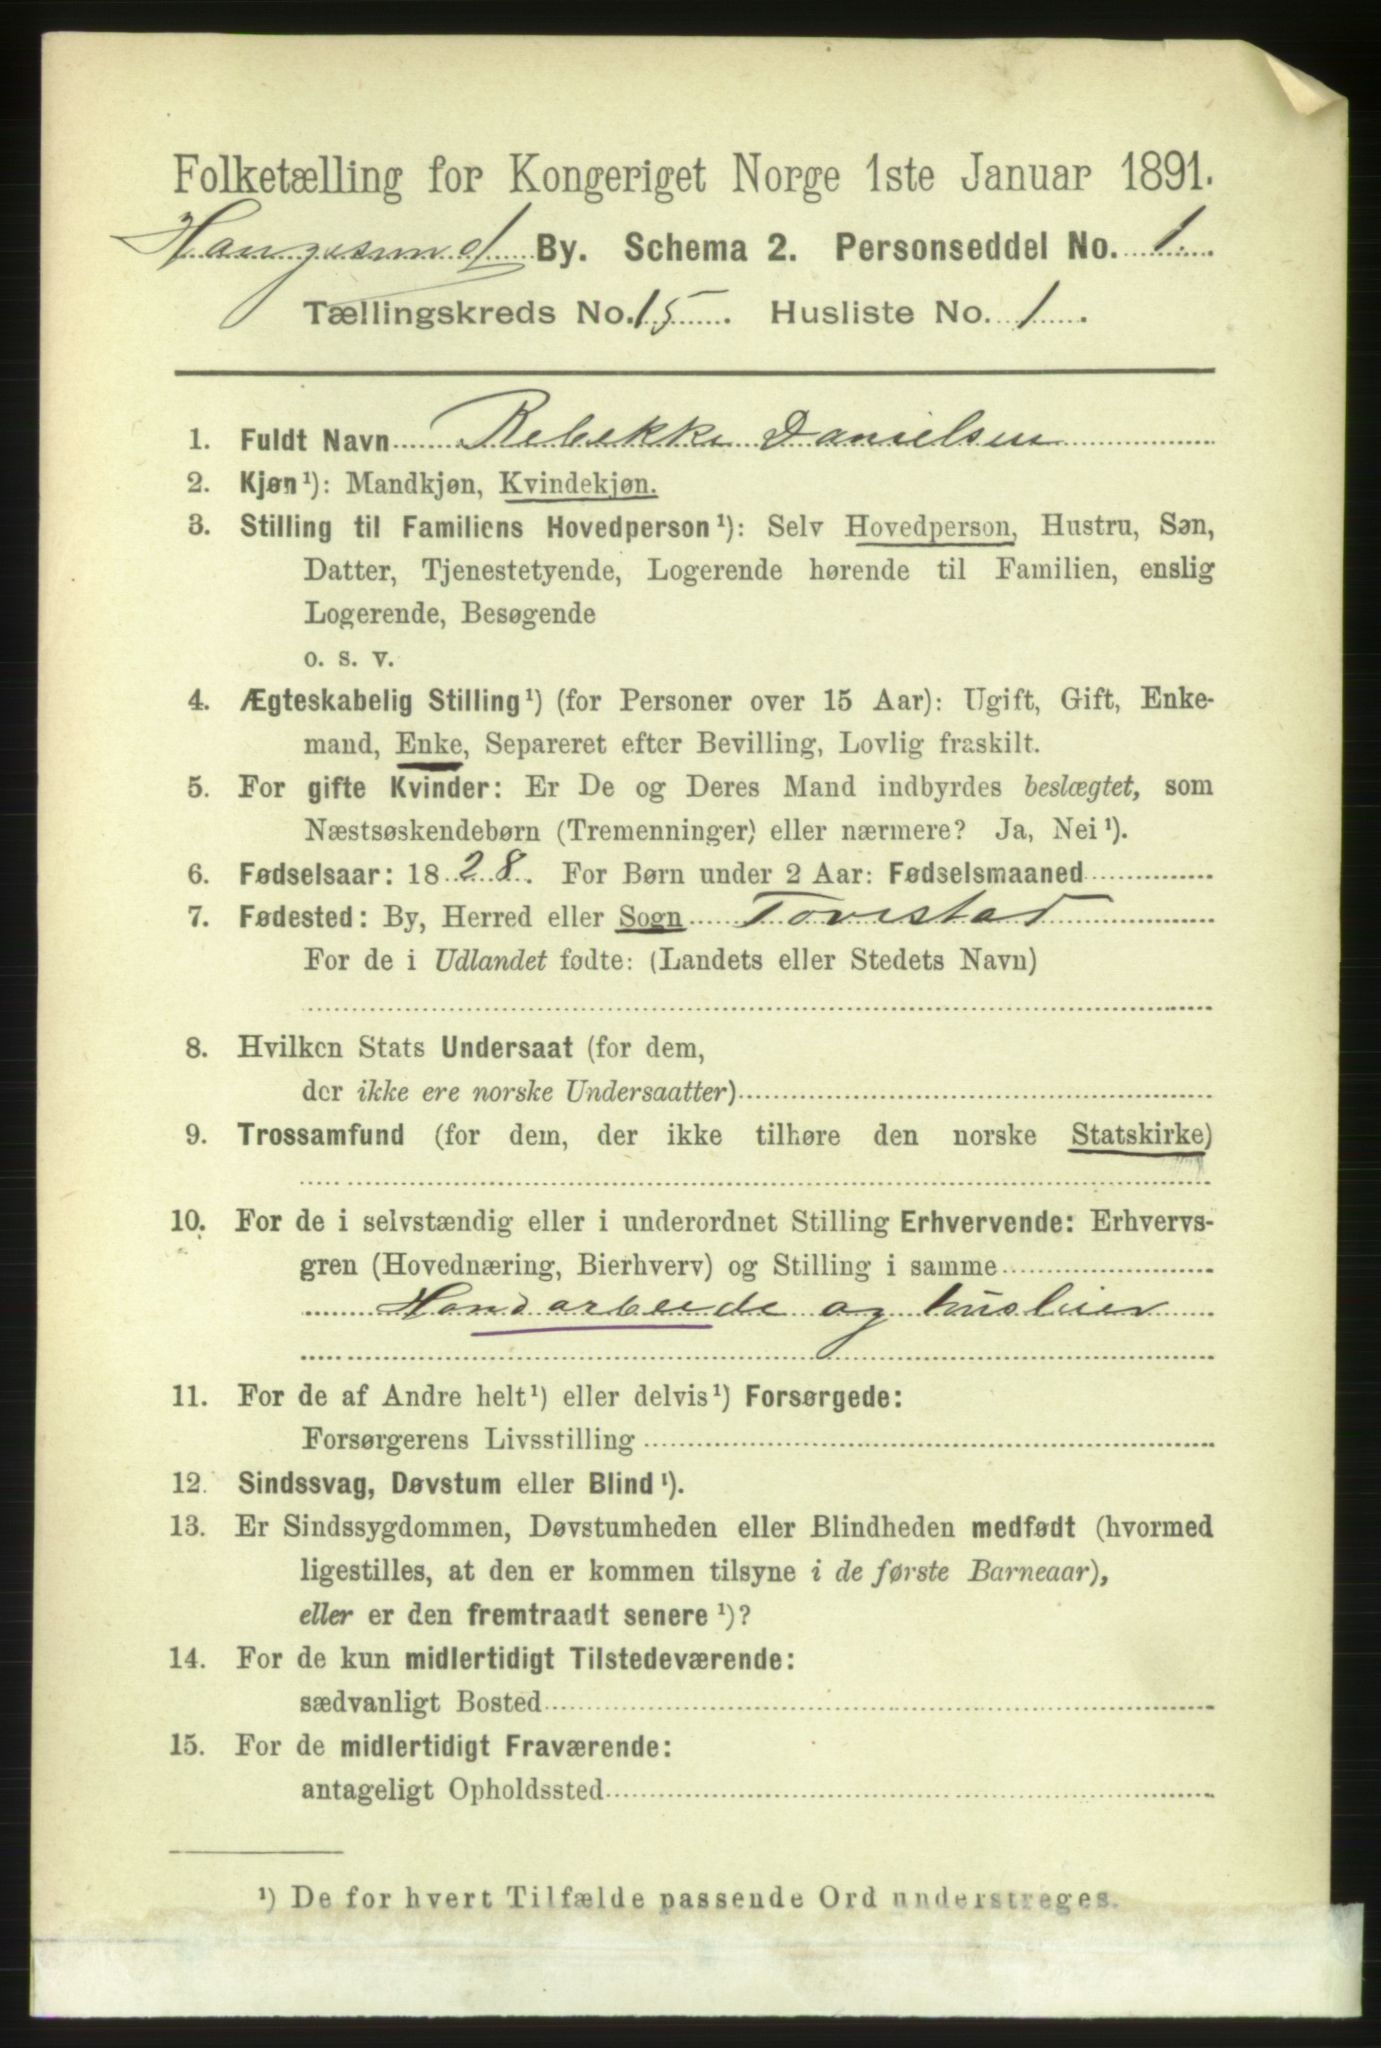 Folketælling for Kongeriget Norge 1ste Januar 1891.
Haugesund By. Schema 2. Personseddel No. 1.
Tællingskreds No. 15. Husliste No. 1.
1. Fuldt Navn Rebekke Danielsen
2. Kjøn¹): Mandkjøn, Kvindekjøn.
3. Stilling til Familiens Hovedperson¹): Selv Hovedperson, Hustru, Søn,
Datter, Tjenestetyende, Logerende hørende til Familien, enslig
Logerende, Besøgende
o. s. v.
4. Ægteskabelig Stilling¹) (for Personer over 15 Aar): Ugift, Gift, Enke-
mand, Enke, Separeret efter Bevilling, Lovlig fraskilt.
5. For gifte Kvinder: Er De og Deres Mand indbyrdes beslægtet, som
Næstsøskendebørn (Tremenninger) eller nærmere? Ja, Nei¹).
6. Fødselsaar: 1828. For Børn under 2 Aar: Fødselsmaaned
7. Fødested: By, Herred eller Sogn Torvestad
For de i Udlandet fødte: (Landets eller Stedets Navn)
8. Hvilken Stats Undersaat (for dem,
der ikke ere norske Undersaatter)
9. Trossamfund (for dem, der ikke tilhøre den norske Statskirke)
10. For de i selvstændig eller i underordnet Stilling Erhvervende: Erhvervs-
gren (Hovednæring, Bierhverv) og Stilling i samme
Handarbeide og husleier
11. For de af Andre helt¹) eller delvis¹) Forsørgede:
Forsørgerens Livsstilling
12. Sindssvag, Døvstum eller Blind¹).
13. Er Sindssygdommen, Døvstumheden eller Blindheden medfødt (hvormed
ligestilles, at den er kommen tilsyne i de første Barneaar),
eller er den fremtraadt senere¹)?
14. For de kun midlertidigt Tilstedeværende:
sædvanligt Bosted
15. For de midlertidigt Fraværende:
antageligt Opholdssted
¹) De for hvert Tilfælde passende Ord understreges.